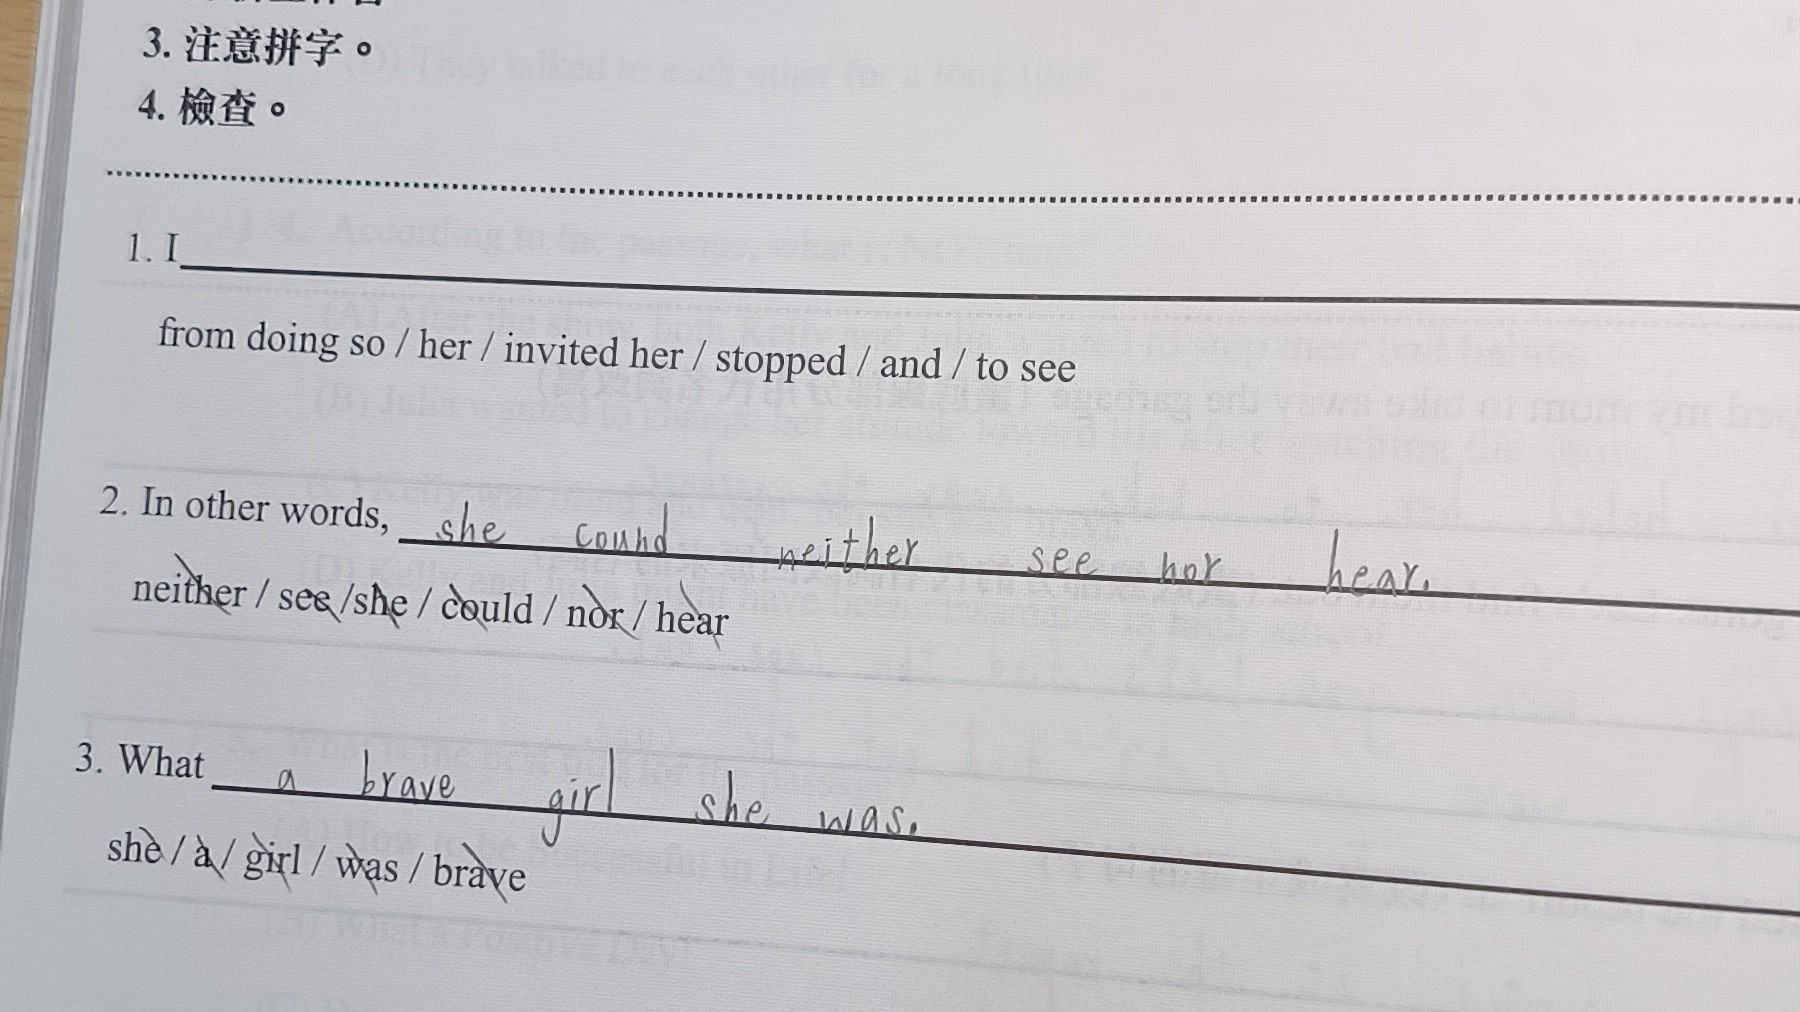 3. 注意拼字。
4. 檢查。
1. I
from doing so / her / invited her / stopped / and / to see
2. In other words, she cound neither see nor hear.
neither / see /she / could / nor / hear
3. What a brave girl she was.
she / a / girl / was / brave